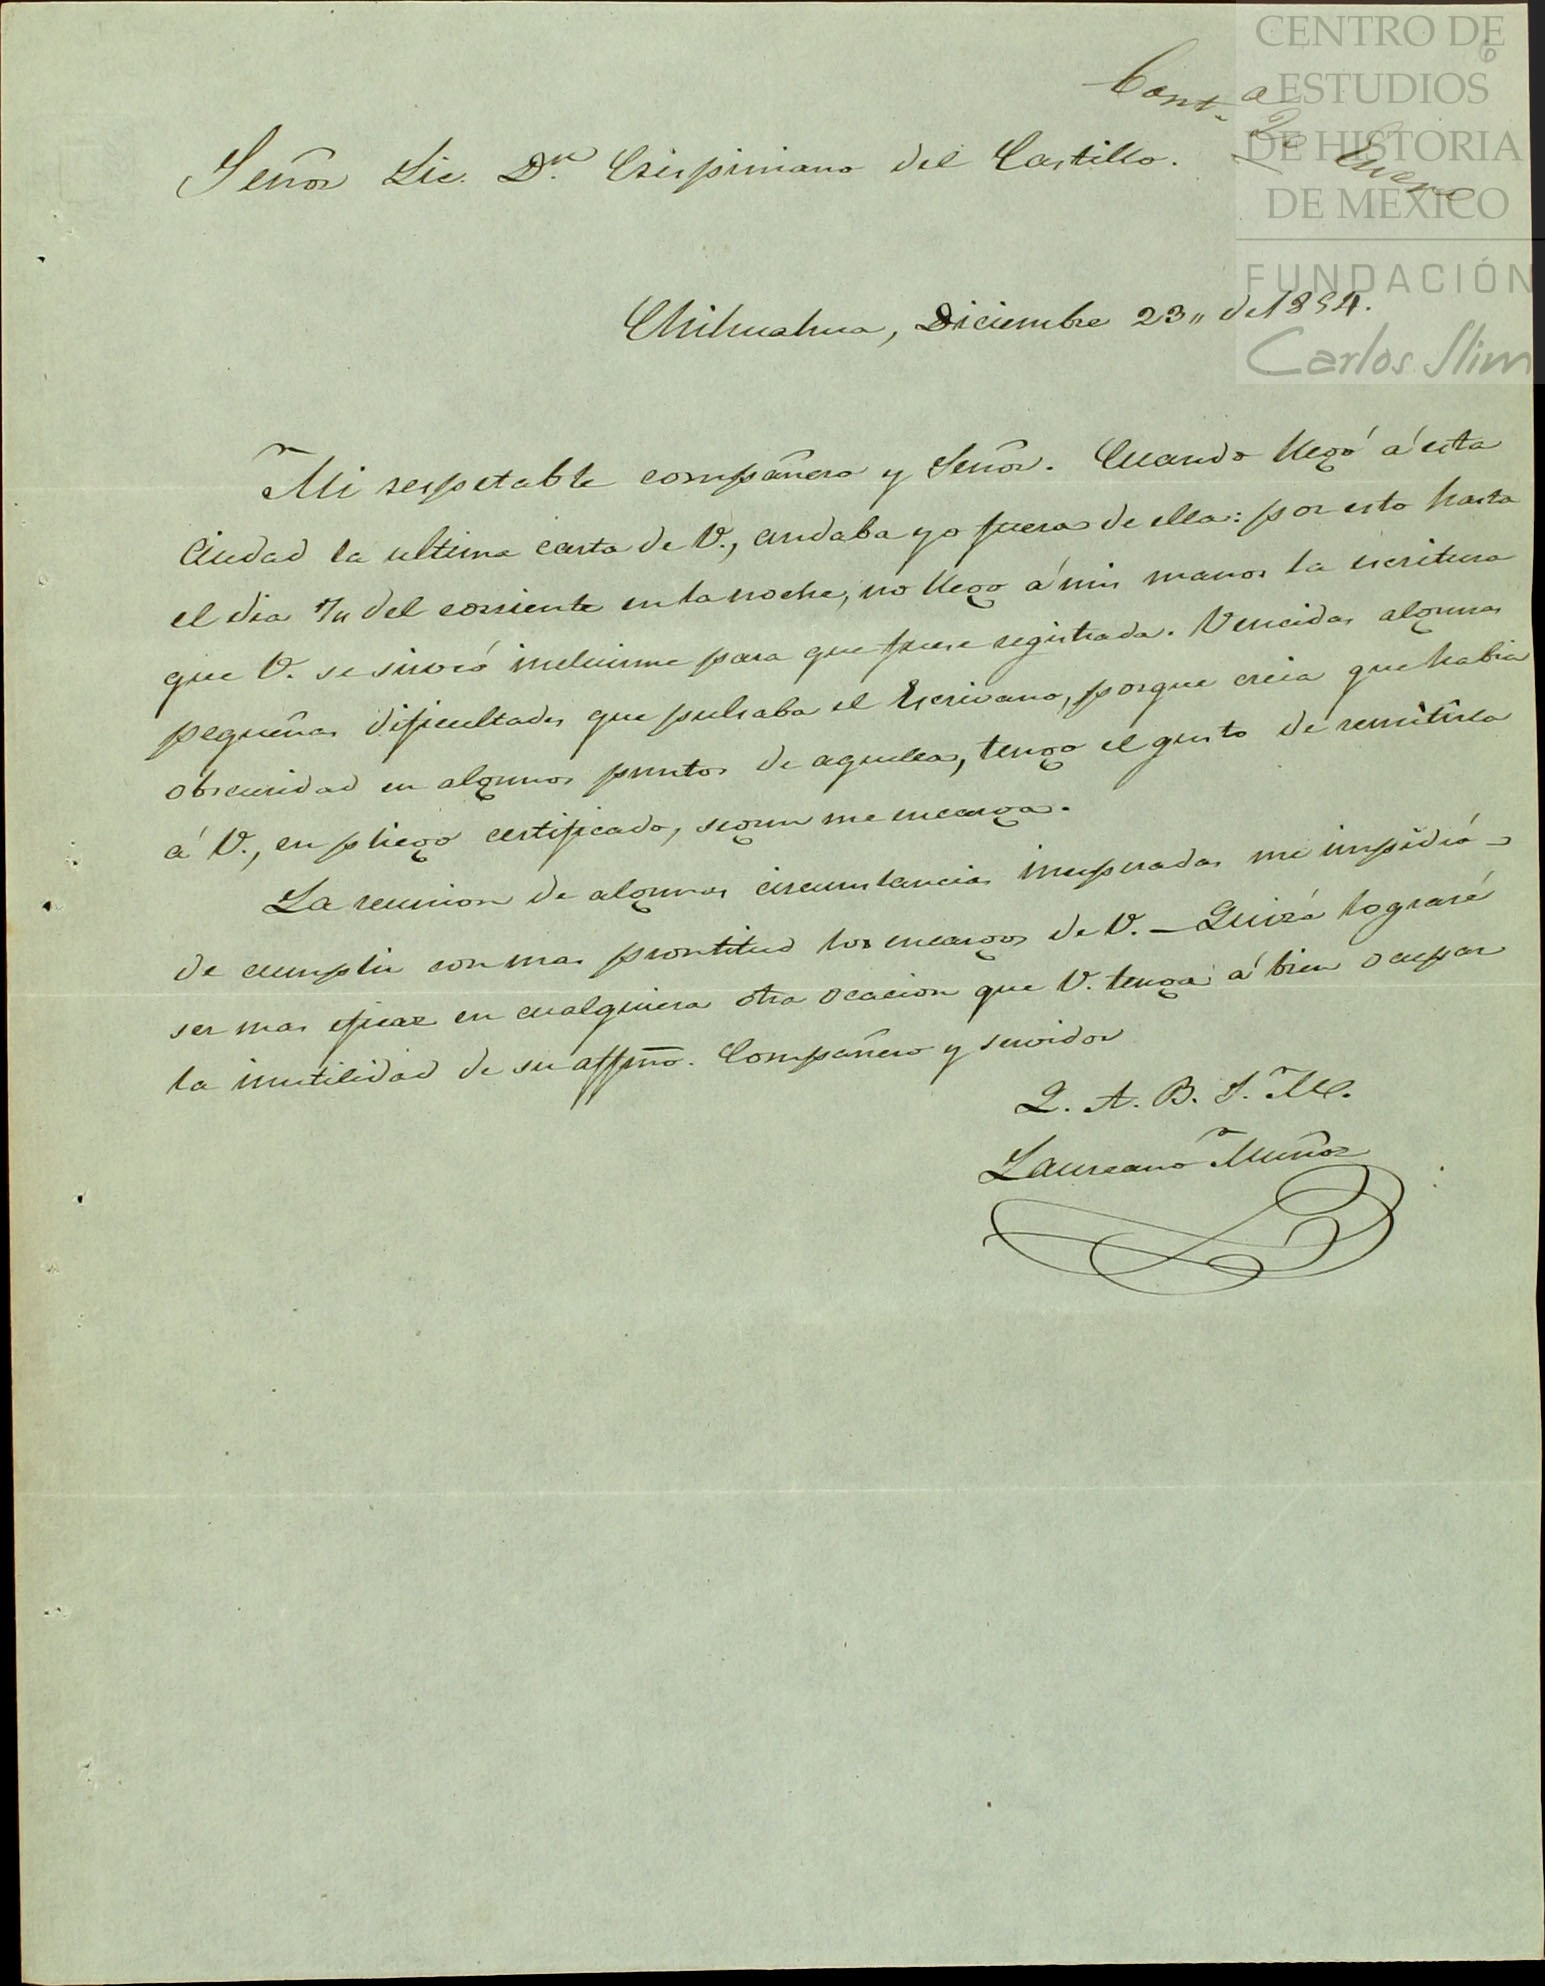 CENTRO DE
ESTUDIOS
DE HISTORIA
DE MEXICO
FUNDACIÓN
Carlos Slim
6
Cont.a 2 Enero
Señor Lic. D.n Crispiniano del Castillo.
Chihuahua, Diciembre 23,, de 1854.
Mi respetable compañero y Señor. Cuando llegó á esta
Ciudad la ultima carta de V., andaba yo fuera de ella: por esto hasta
el dia del corriente en la noche, no llego á mis manos la escritura
que V. se sirvió incluirme para que fuese registrada. Vencidas algunas
pequeñas dificultades que pulsaba el Escrivano, porque creia que habia
obscuridad en algunos puntos de aquella, tengo el gusto de remitirla
á V., en pliego certificado, segun me encarga.
La reunion de algunas circunstancias inesperadas me impidió
de cumplir con mas prontitud los encargos de V. — Quizá lograré
ser mas eficaz en cualquiera otra ocacion que V. tenga á bien ocupar
la inutilidad de su affmo. Compañero y servidor
Q. A. B. S. M.
Laureano Muñoz